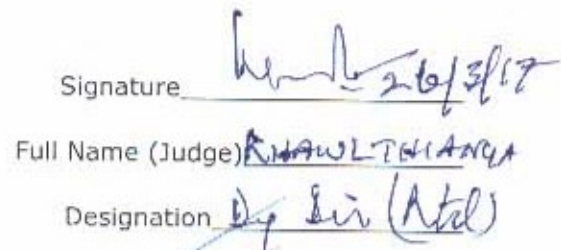 Signature 26/3/17
Full Name (Judge) KHAWLTHIANGA
Designation Dy Dir (Rtd)